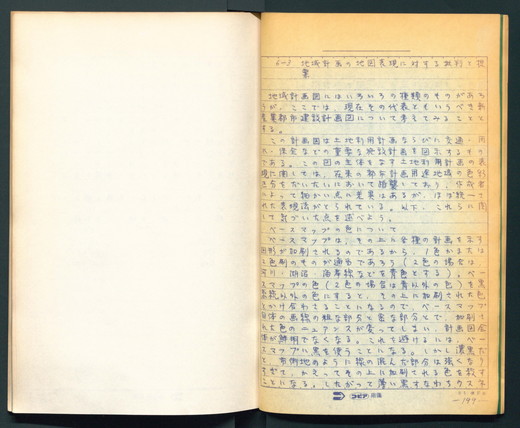 5-3 地域計画の地図表現に対する批判と提
案
地域計画図にはいろいろの種類のものがあろ
うが、ここでは、現在その代表ともいうべき新
産業都市建設計画図について考えてみることと
する。
この図は土地利用計画ならびに交通、用
水、住宅などの重要な施設計画を図示するもの
である。この図の主体をなす土地利用計画の表
現に関しては、在来の都市計画用途地域の色別
き方をだいたいにおいて踏襲しており、作成者
によって細かい点の差異はあるが、ほぼ統一さ
れた表現法がとられている。以下、これらに関
して気づいた点を述べよう。
ベースマップの色について
ベースマップは、その上に各種の計画を表す
図形が加刷されるのであるから、1色または
2色刷のものが適当であろう(2色の場合は、
河川・湖沼・海岸線などを青色とする)。ベー
スマップの色(2色の場合は青以外の色)を黒
系統以外の色にすると、その上に加刷された色
とかけ合わさることになるので、ベースマップ
自体の画線の粗な部分と密な部分とで、加刷さ
れた色のニュアンスが変ってしまい、計画図全
体が鮮明でなくなる。これを避けるには、ベー
スマップに黒を使うことになる。しかし濃黒だ
と市街地のように線の混んだ部分は強くなり
すぎて、かえってその上に加刷される色を殺す
ことになる。したがって薄い黒すなわちウスネ
コピア
-197-